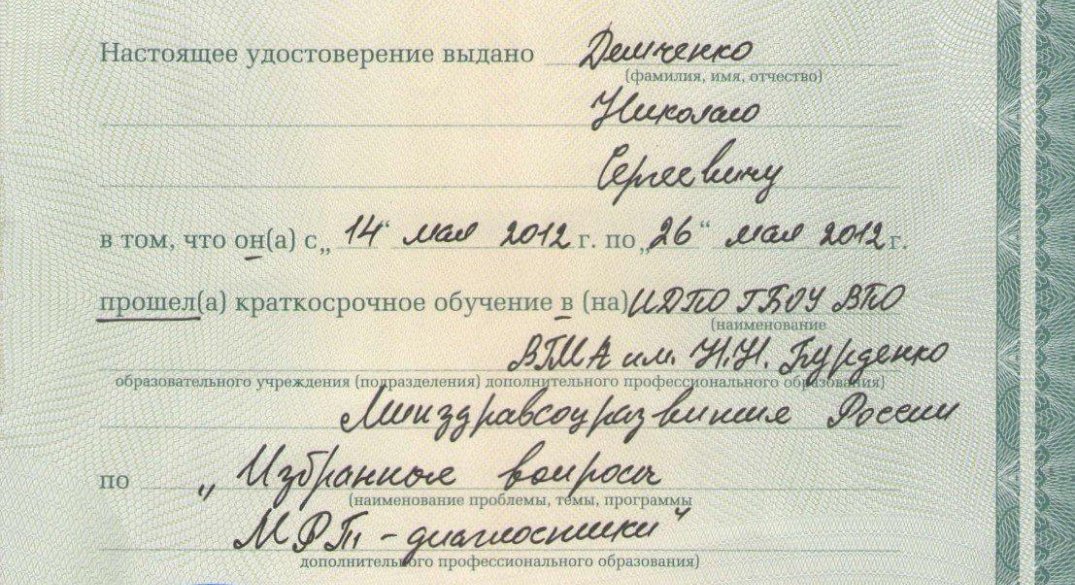 Настоящее удостоверение выдано Демченко
(фамилия, имя, отчество)
Николаю
Сергеевичу
в том, что он(а) с „14“ мая 2012 г. по „26“ мая 2012 г.
прошел(а) краткосрочное обучение в (на) ИДПО ГБОУ ВПО
(наименование
ВГМА им. Н.Н. Бурденко
образовательного учреждения (подразделения) дополнительного профессионального образования)
Минздравсоцразвития России
по „Избранные вопросы
(наименование проблемы, темы, программы
МРТ - диагностики"
дополнительного профессионального образования)